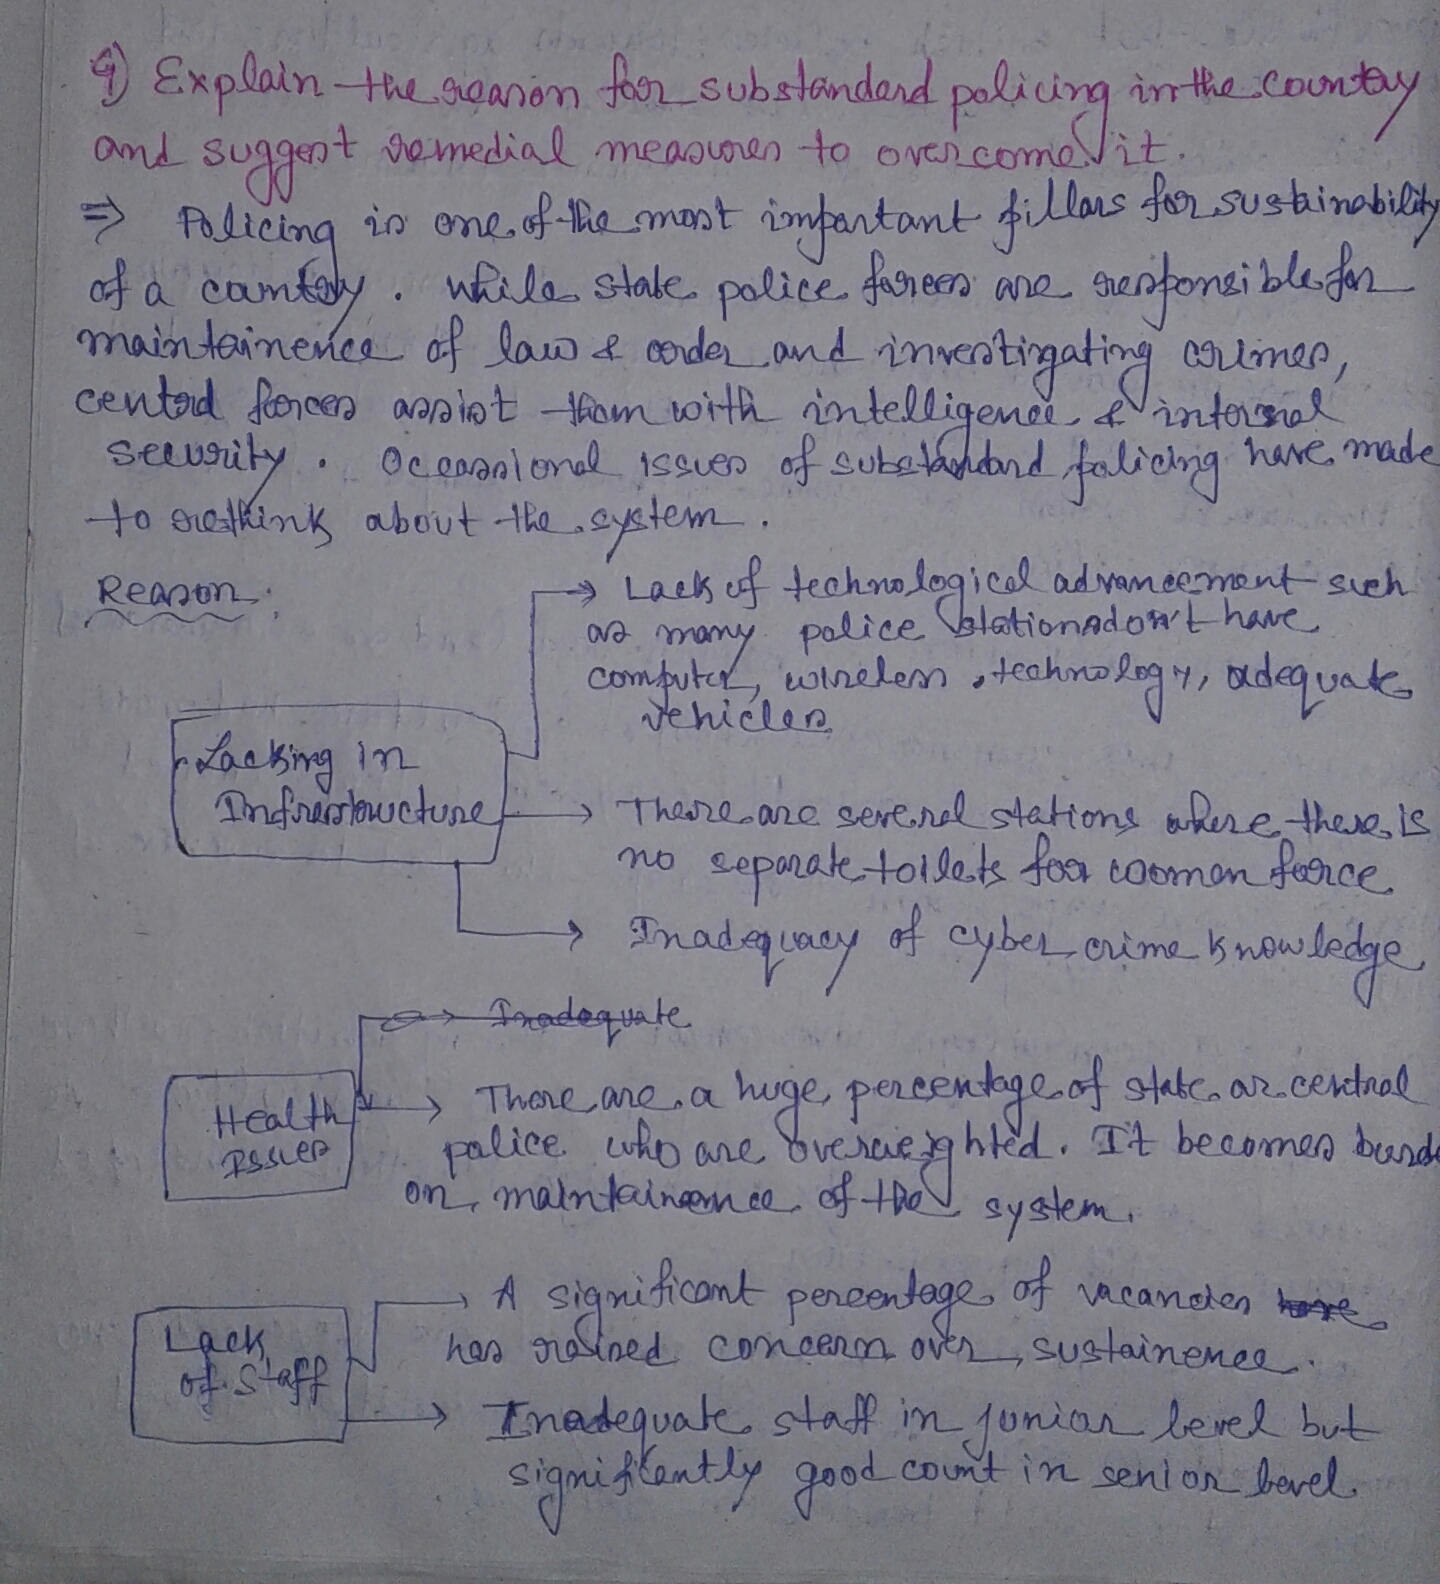 9) Explain the reason for substandard policing in the country
and suggest remedial measures to overcome it.
⇒ Policing is one of the most important pillars for sustainability
of a country. While state police forces are responsible for
maintainence of law & order and investigating crimes,
central forces assist them with intelligence & internal
security. Occassional issues of substandard policing have made
to rethink about the system.
Reason:
→ Lack of technological advancement such
as many police stations don't have
computer, wireless, technology, adequate
vehicles
Lacking in
Infrastructure
→ There are several stations where there is
no separate toilets for women force
→ Inadequacy of cyber crime knowledge
→ Inadequate
Health
Issues
→ There are a huge percentage of state or central
police who are overweighted. It becomes burde
on maintainence of the system.
Lack
of Staff
→ A significant percentage of vacancies have
has raised concern over sustainence.
→ Inadequate staff in junior level but
significantly good count in senior level